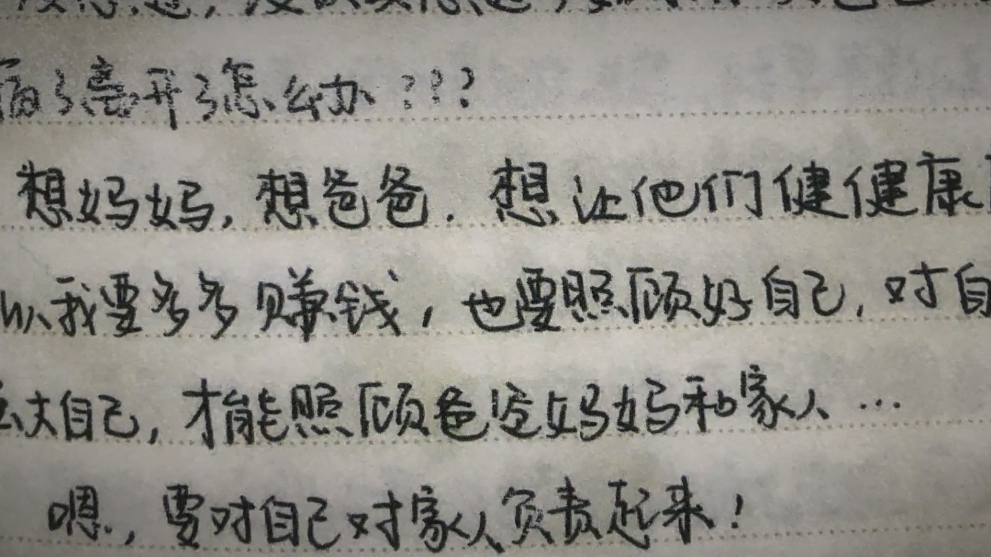 病了离开了怎么办???
想妈妈,想爸爸.想让他们健健康
以我要多多赚钱,也要照顾好自己,对自
大自己,才能照顾爸爸妈妈和家人...
嗯.,要对自己对家人负责起来!